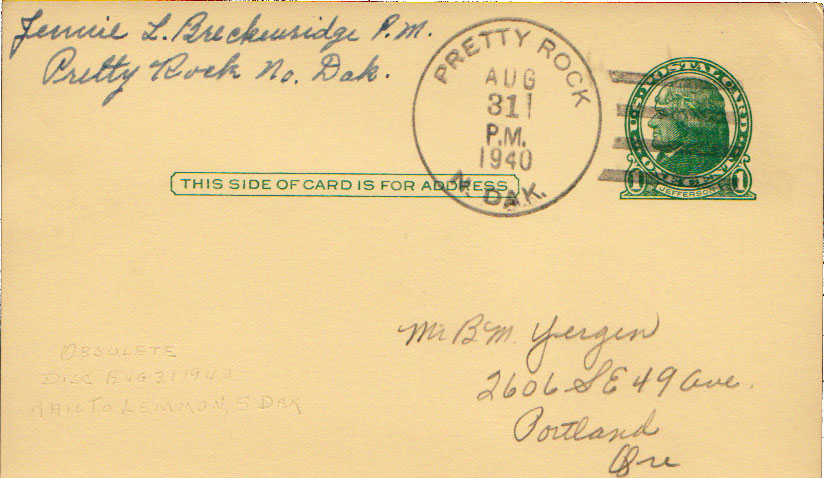 Jennie L. Breckenridge P.M.
Pretty Rock No. Dak.
PRETTY ROCK
AUG
31
P.M.
1940
N. DAK.
1 JEFFERSON 1
THIS SIDE OF CARD IS FOR ADDRESS
Mr B M. Yergen
2606 S E 49 Ave.
Portland
Ore
OBSOLETE
DISC AUG 31 1940
MAIL TO LEMMON, S. DAK